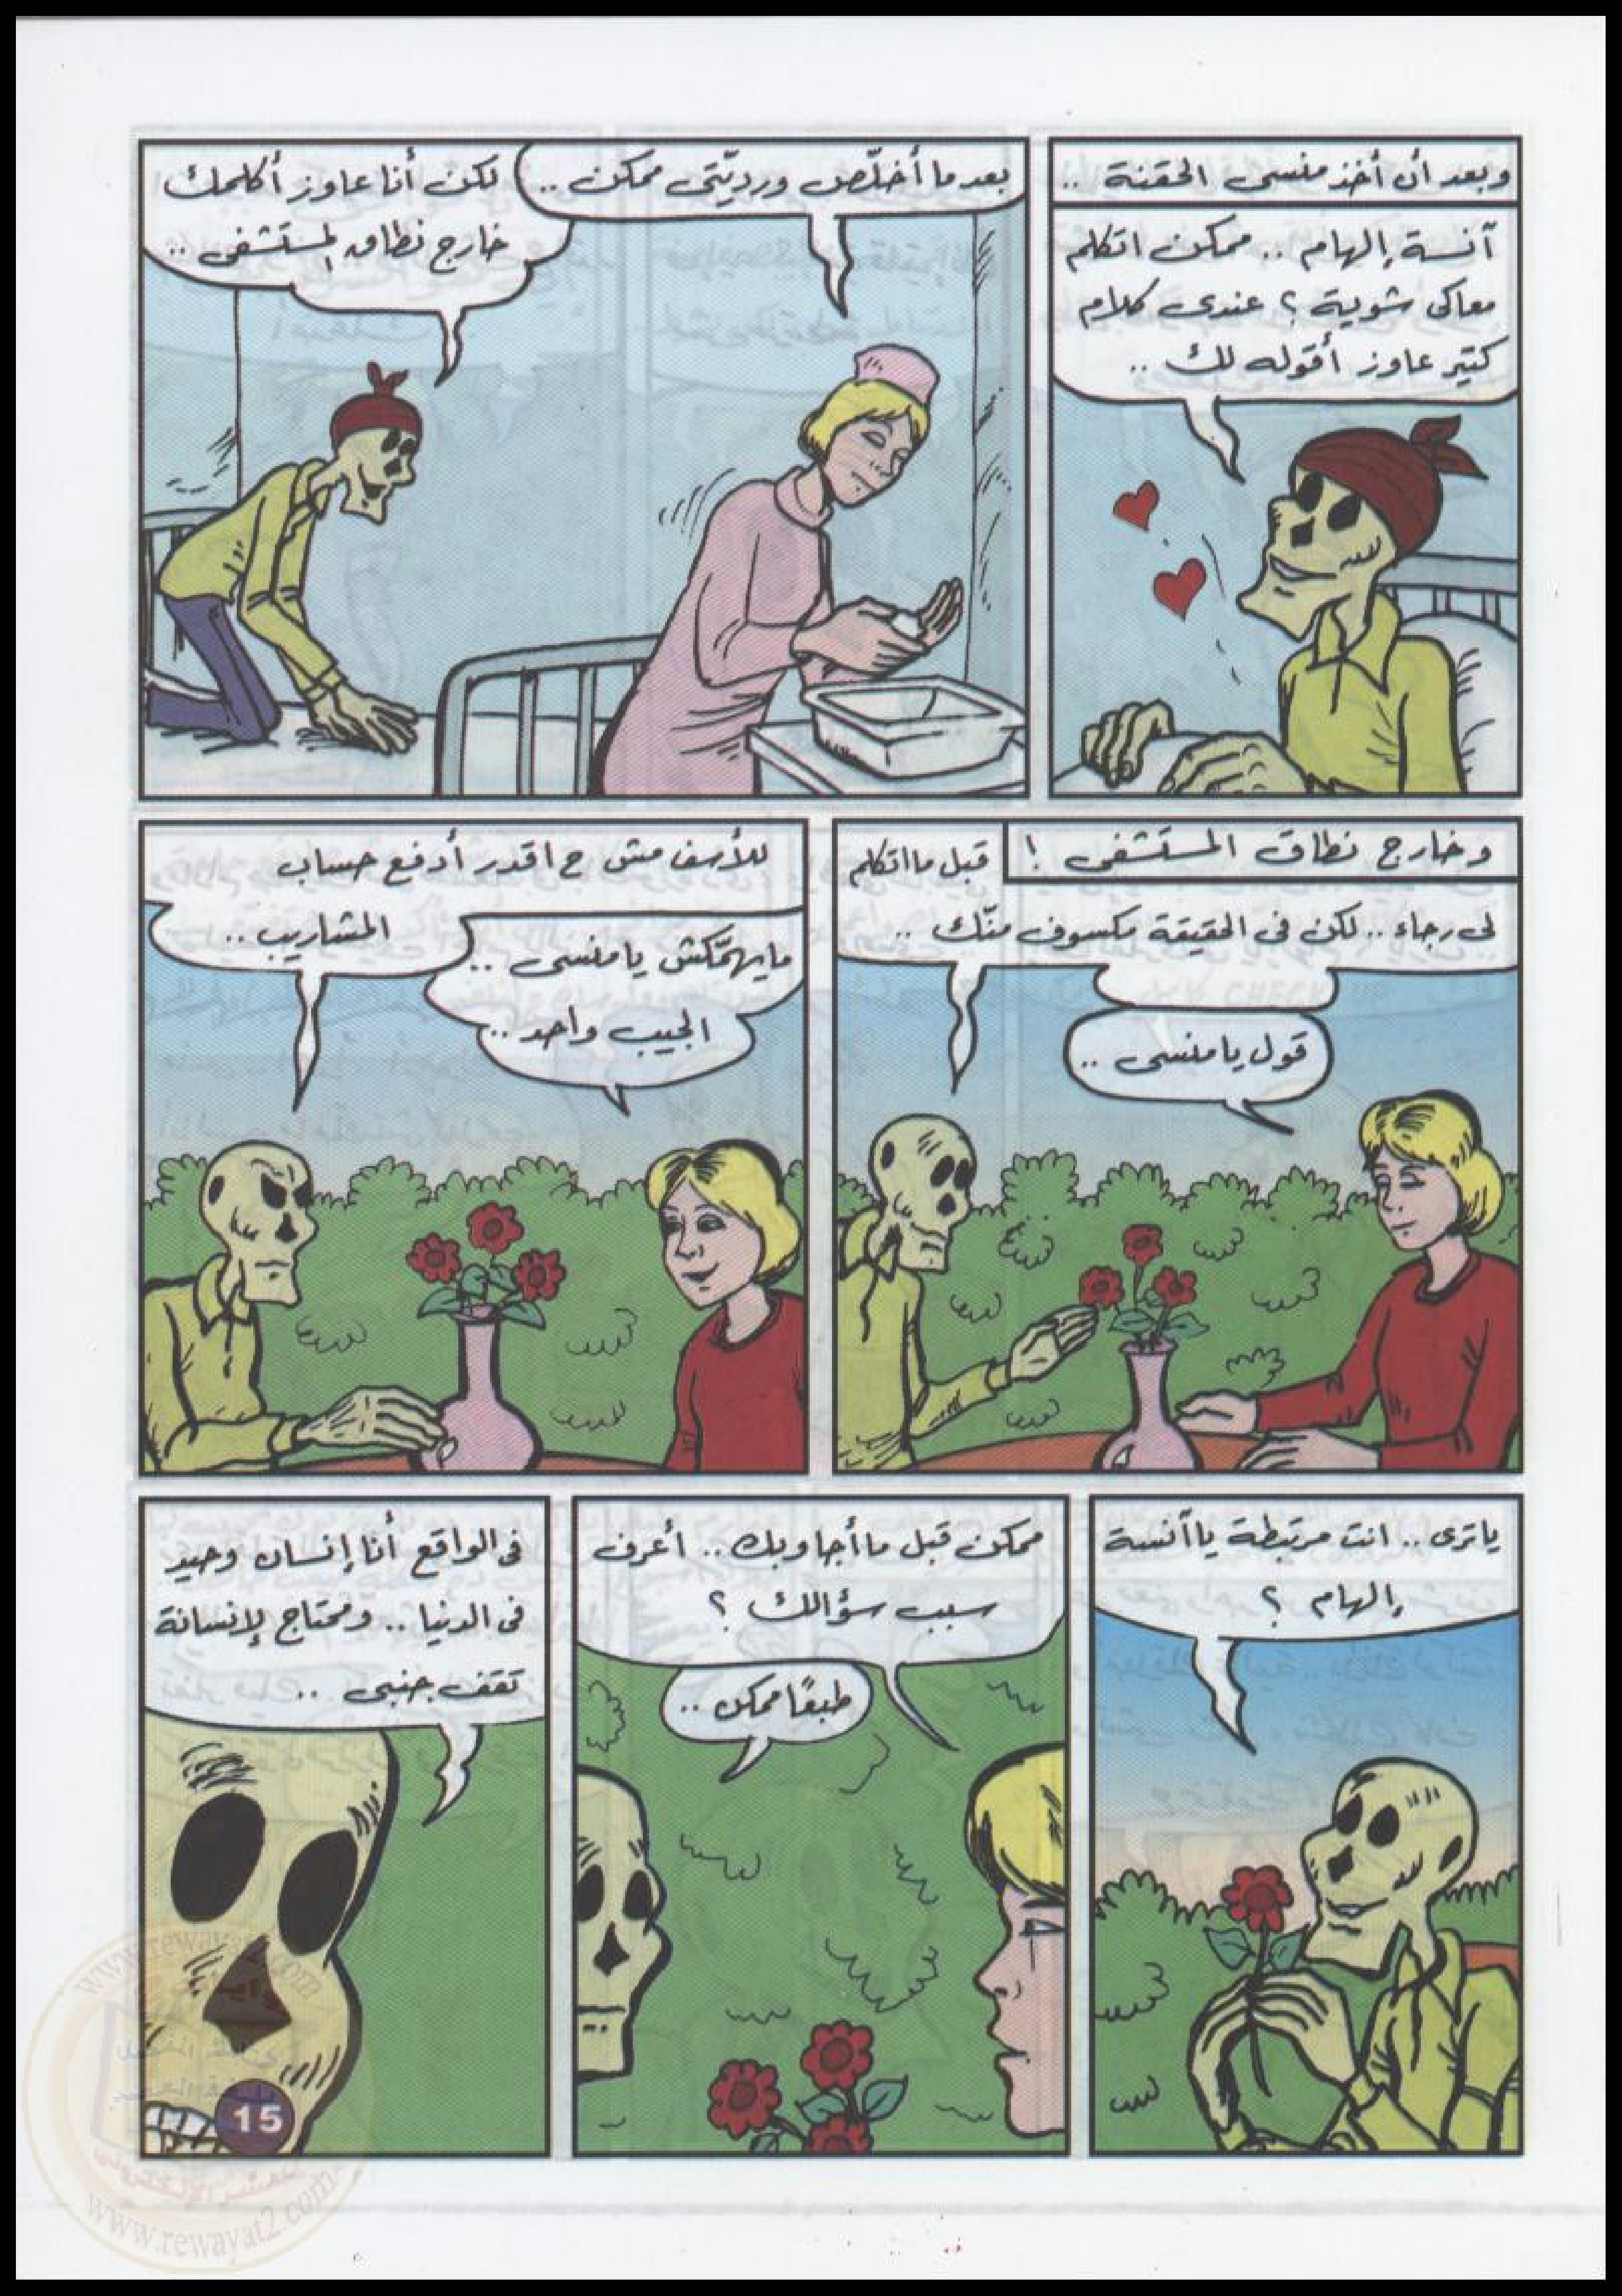 وبعد أن أخذ منسى الحقنة ..
آنسة إلهام .. ممكن اتكلم
معاكى شوية ؟ عندى كلام
كتير عاوز أقوله لك ..
بعد ما أخلّص ورديّتى ممكن ..
لكن أنا عاوز أكلمك
خارج نطاق المستشفى ..
وخارج نطاق المستشفى !
قبل ما اتكلم
لى رجاء .. لكن فى الحقيقة مكسوف منّك ..
قول يا منسى ..
للأسف مش ح اقدر أدفع حساب
المشاريب ..
ما يهمّكش يا منسى ..
الجيب واحد ..
ياترى .. انت مرتبطة يا آنسة
إلهام ؟
ممكن قبل ما أجاوبك .. أعرف
سبب سؤالك ؟
طبعًا ممكن ..
فى الواقع أنا إنسان وحيد
فى الدنيا .. ومحتاج لإنسانة
تقف جنبى ..
15
www.rewayat2.com